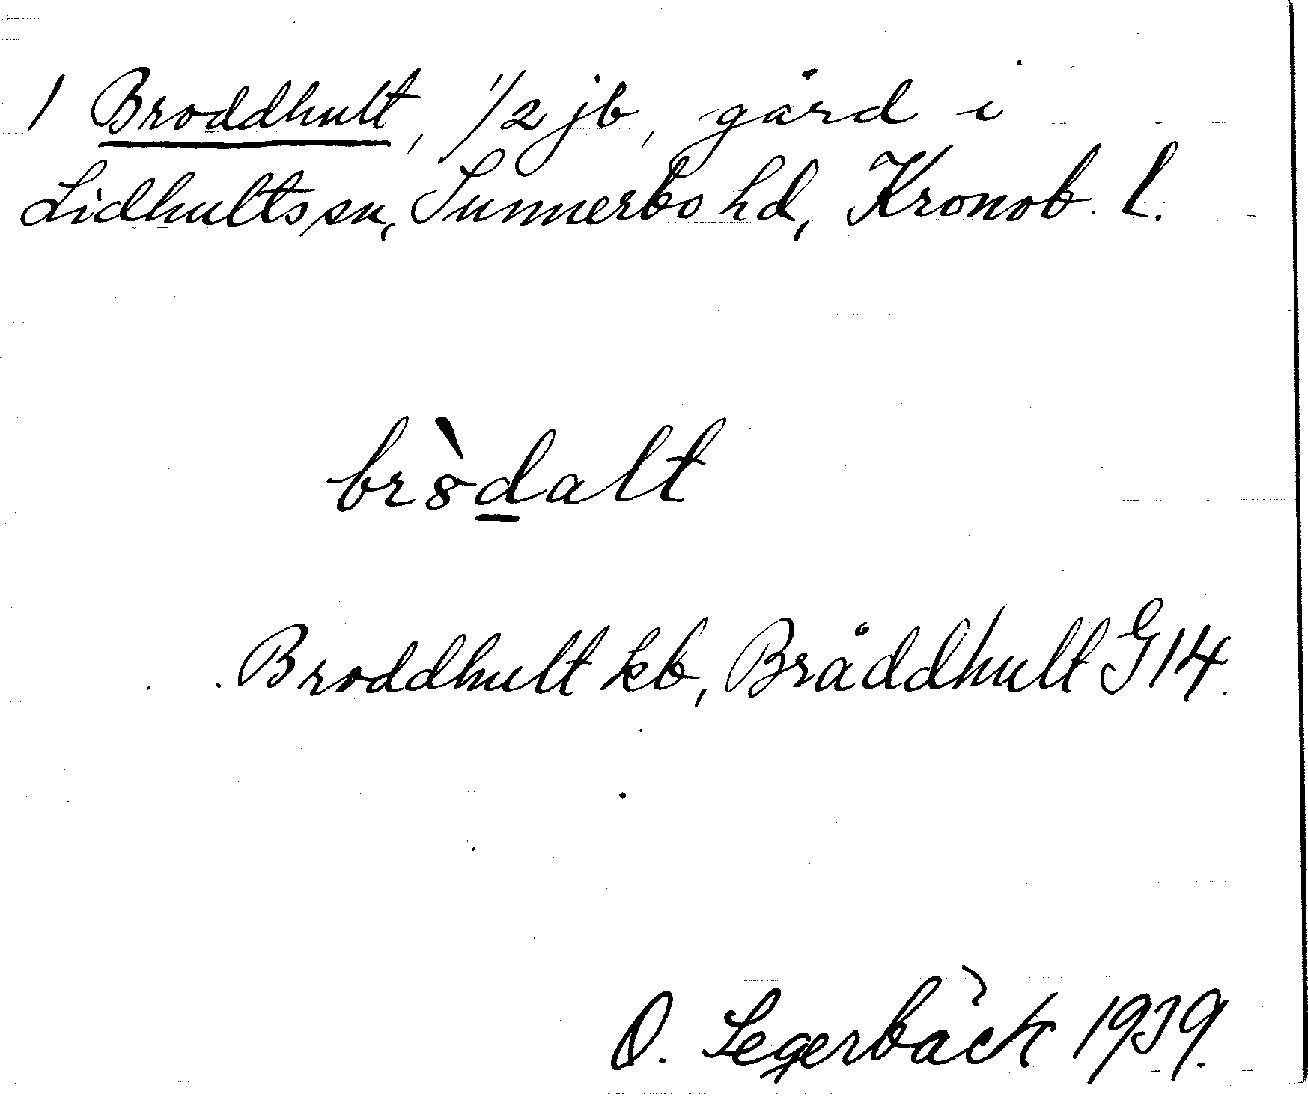 1 Broddhult, 1/2 jb, gård i
Lidhults sn, Sunnerbo hd, Kronob. l.
br8̀d̲alt
Broddhult kb, Bråddhult G14.
O. Segerbäck 1939.